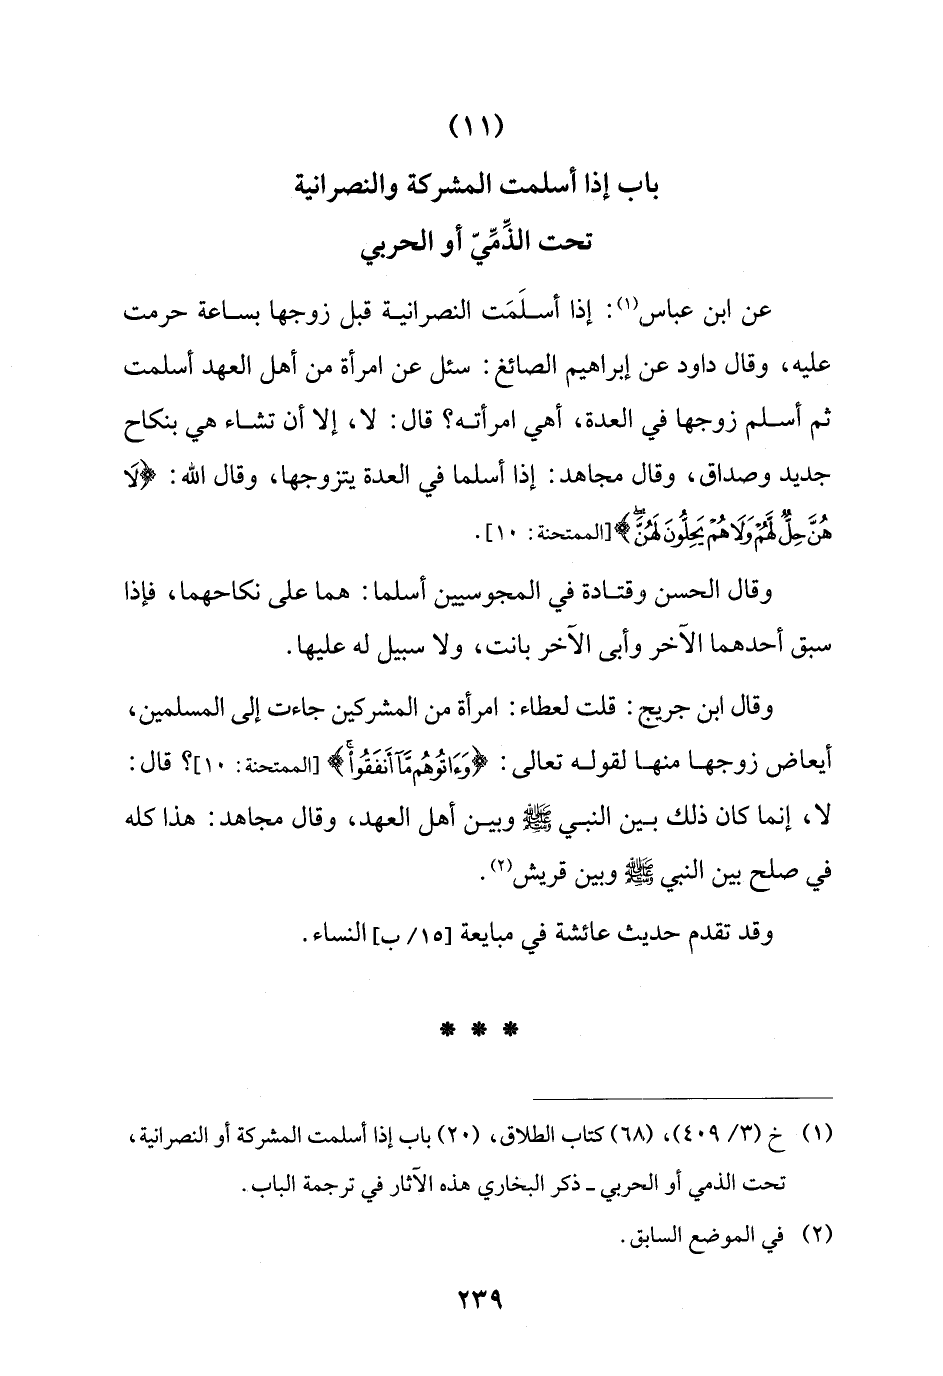 (١١)
باب إذا أسلمت المشركة والنصرانية
تحت الذِّمِّيّ أو الحربي
عن ابن عباس(١): إذا أسلَمَت النصرانية قبل زوجها بساعة حرمت
عليه، وقال داود عن إبراهيم الصائغ: سئل عن امرأة من أهل العهد أسلمت
ثم أسلم زوجها في العدة، أهي امرأته؟ قال: لا، إلا أن تشاء هي بنكاح
جديد وصداق، وقال مجاهد: إذا أسلما في العدة يتزوجها، وقال الله: ﴿لَا
هُنَّ حِلٌّ لَّهُمْ وَلَا هُمْ يَحِلُّونَ لَهُنَّ﴾ [الممتحنة: ١٠].
وقال الحسن وقتادة في المجوسيين أسلما: هما على نكاحهما، فإذا
سبق أحدهما الآخر وأبى الآخر بانت، ولا سبيل له عليها.
وقال ابن جريج: قلت لعطاء: امرأة من المشركين جاءت إلى المسلمين،
أيعاض زوجها منها لقوله تعالى: ﴿وَءَاتُوهُم مَّآ أَنفَقُوا۟﴾ [الممتحنة: ١٠]؟ قال:
لا، إنما كان ذلك بين النبي ﷺ وبين أهل العهد، وقال مجاهد: هذا كله
في صلح بين النبي ﷺ وبين قريش(٢).
وقد تقدم حديث عائشة في مبايعة [١٥/ ب] النساء.
* * *
(١) خ (٣/ ٤٠٩)، (٦٨) كتاب الطلاق، (٢٠) باب إذا أسلمت المشركة أو النصرانية،
تحت الذمي أو الحربي ـ ذكر البخاري هذه الآثار في ترجمة الباب.
(٢) في الموضع السابق.
٢٣٩